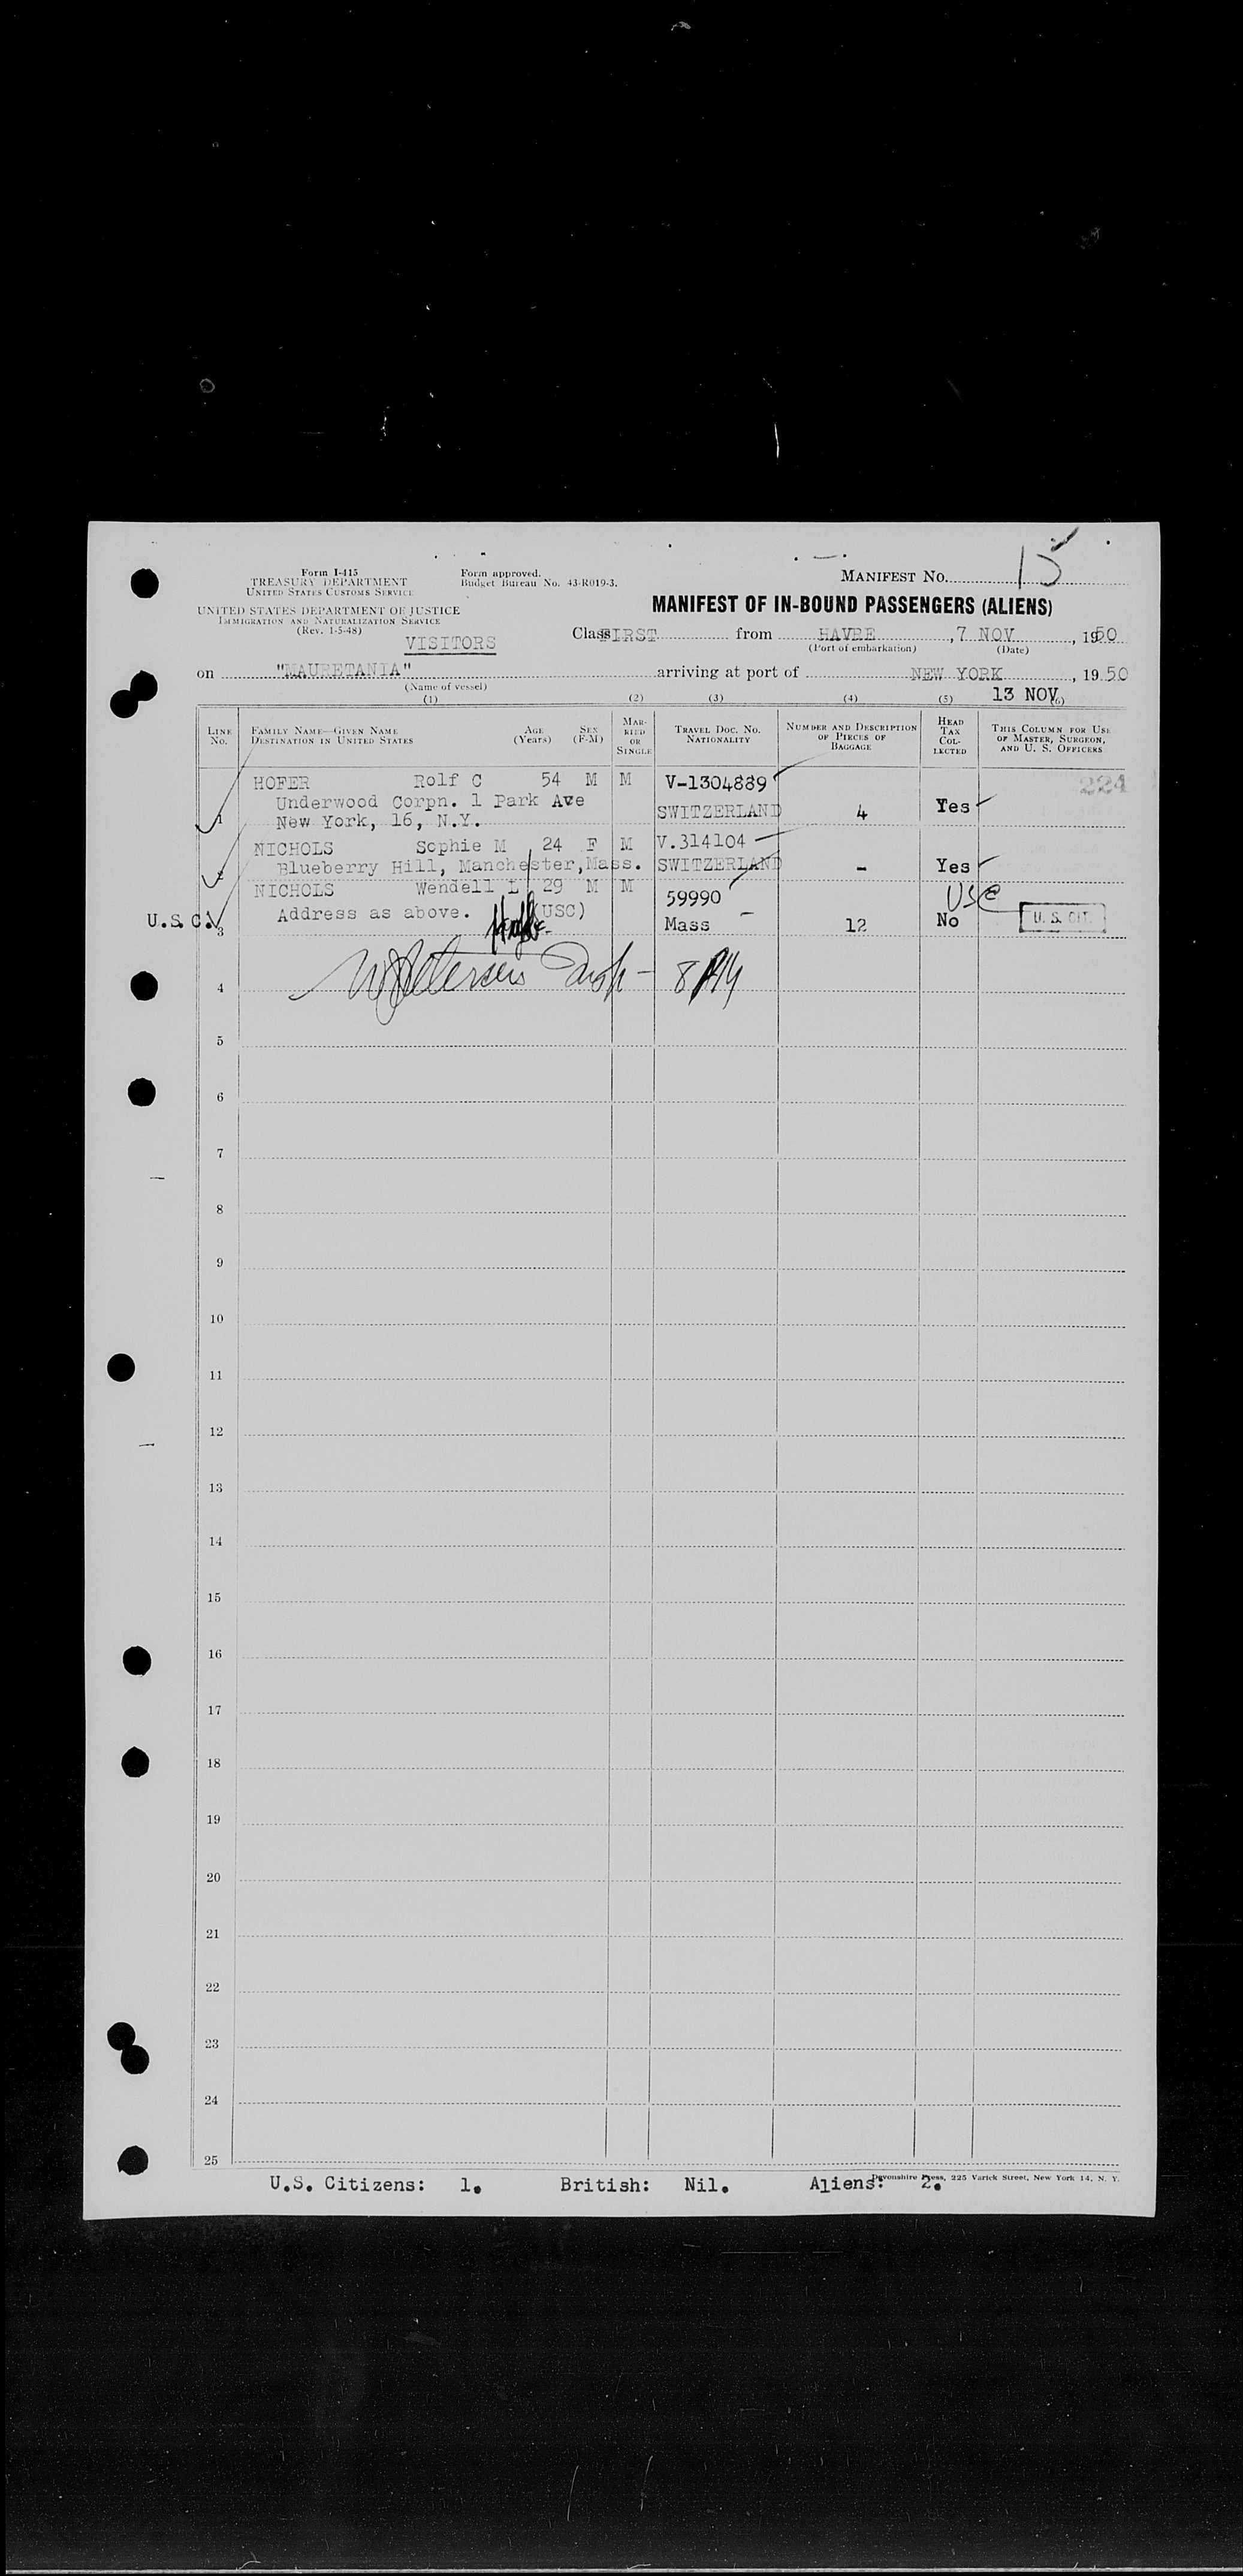 Form I-415
TREASURY DEPARTMENT
UNITED STATES CUSTOMS SERVICE
UNITED STATES DEPARTMENT OF JUSTICE
IMMIGRATION AND NATURALIZATION SERVICE
(Rev. 1-5-48)
Form approved.
Budget Bureau No. 43-R019-3.
MANIFEST NO. 15
MANIFEST OF IN-BOUND PASSENGERS (ALIENS)
VISITORS
Class FIRST from HAVRE, 7 NOV, 1950
(Port of embarkation) (Date)
on "MAURETANIA" arriving at port of NEW YORK, 1950
(Name of vessel) 13 NOV
(1) (2) (3) (4) (5) (6)
LINE NO.
FAMILY NAME—GIVEN NAME
DESTINATION IN UNITED STATES
AGE (Years)
SEX (F-M)
MARRIED OR SINGLE
TRAVEL DOC. NO.
NATIONALITY
NUMBER AND DESCRIPTION OF PIECES OF BAGGAGE
HEAD TAX COLLECTED
THIS COLUMN FOR USE OF MASTER, SURGEON, AND U. S. OFFICERS
HOFER Rolf C 54 M M V-1304889 224
Underwood Corpn. 1 Park Ave SWITZERLAND 4 Yes
1 New York, 16, N.Y.
NICHOLS Sophie M 24 F M V.314104
2 Blueberry Hill, Manchester,Mass. SWITZERLAND - Yes
NICHOLS Wendell L 29 M M 59990 USC
U.S.C. 3 Address as above. (USC) Mass 12 No U. S. CIT.
4
5
6
7
8
9
10
11
12
13
14
15
16
17
18
19
20
21
22
23
24
25
U.S. Citizens: 1. British: Nil. Aliens: 2.
Devonshire Press, 225 Varick Street, New York 14, N. Y.